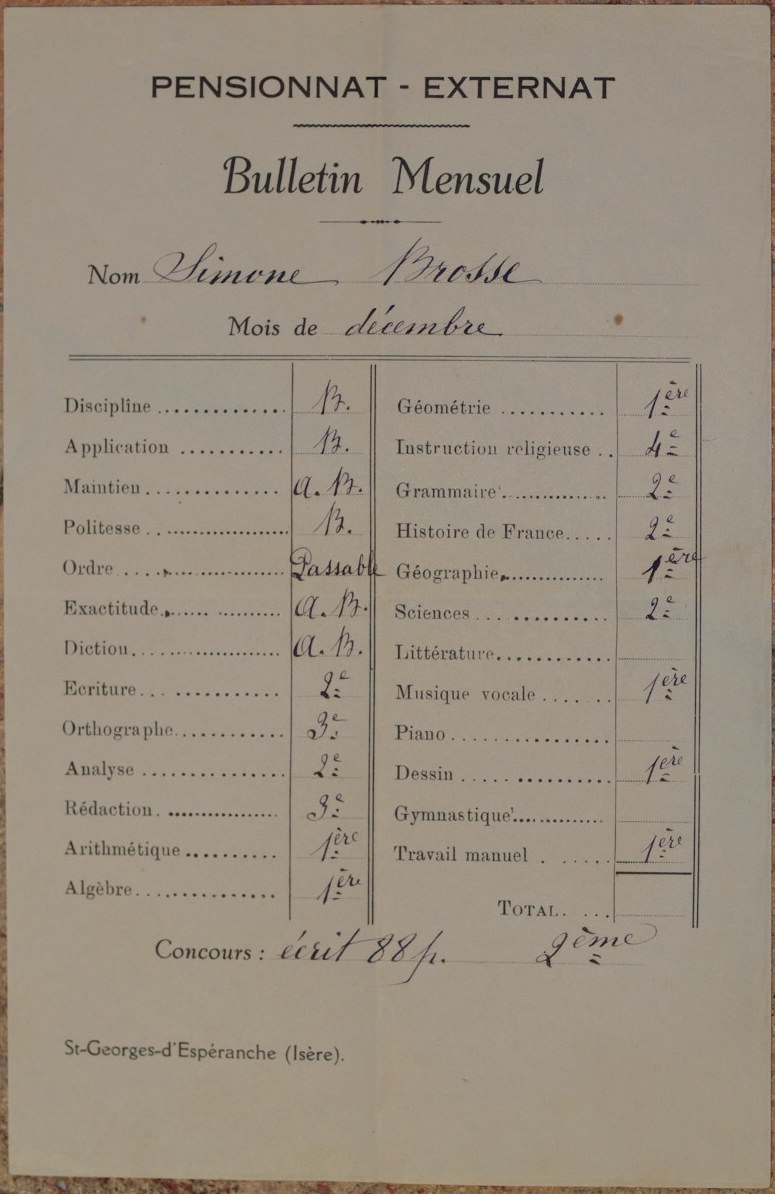 PENSIONNAT - EXTERNAT
Bulletin Mensuel
Nom Simone Brosse
Mois de décembre
Discipline .............. B.
Application ........... B.
Maintien .............. a. B.
Politesse .................... B.
Ordre .................... Passable
Exactitude ................ a. B.
Diction .................... a. B.
Ecriture ................ 2e
Orthographe ............ 3e
Analyse ............... 2e
Rédaction ................. 3e
Arithmétique .......... 1ère
Algèbre ................ 1ère
Géométrie ........... 1ère
Instruction religieuse .. 4e
Grammaire ............... 2e
Histoire de France ..... 2e
Géographie .............. 1ère
Sciences ............... 2e
Littérature .............
Musique vocale ....... 1ère
Piano .................
Dessin ................ 1ère
Gymnastique .............
Travail manuel ....... 1ère
TOTAL. ...
Concours : écrit 88 p. 2ème
St-Georges-d'Espéranche (Isère).